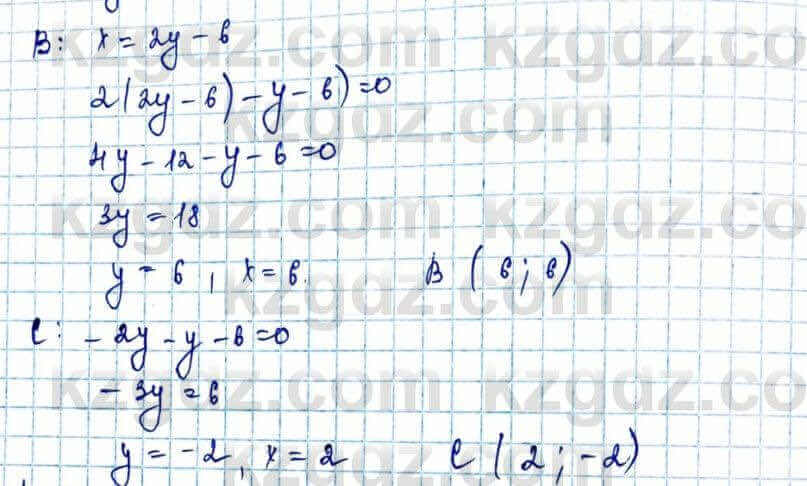 B: x = 2y - 6
kzgdz.com kzgdz.co
2(2y - 6) - y - 6) = 0
kzgdz.com
4y - 12 - y - 6 = 0
3y = 18
kzgdz.com kzgdz.co
y = 6, x = 6. B (6; 6)
kzgdz.com
C: - 2y - y - 6 = 0
kzgdz.com kzgdz.co
- 3y = 6
y = -2, x = 2 C (2; -2)
kzgdz.com